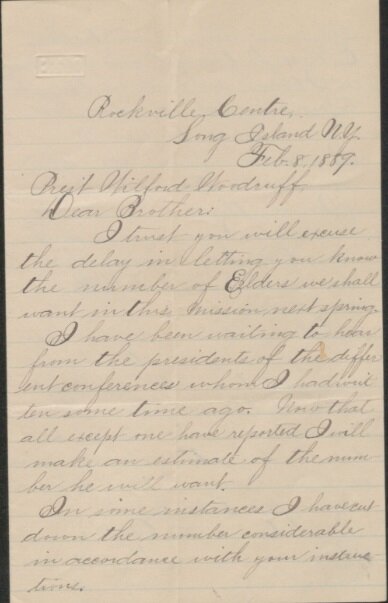 Rockville Centre,
Long Island N.Y.
Feb. 8, 1889.
Pres't Wilford Woodruff,
Dear Brother:
I trust you will excuse
the delay in letting you know
the number of Elders we shall
want in this mission next spring.
I have been waiting to hear
from the presidents of the differ
ent conferences whom I had writ
ten some time ago. Now that
all except one have reported I will
make an estimate of the num
ber he will want.
In some instances I have cut
down the number considerable
in accordance with your instruc
tions.